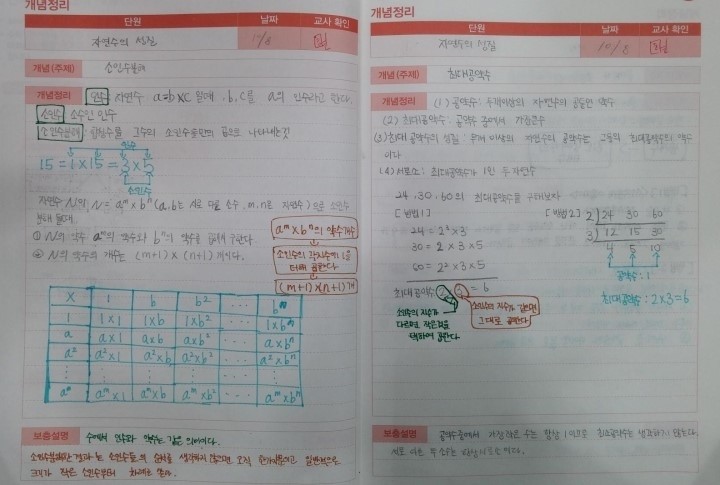 개념정리
단원 날짜 교사 확인
자연수의 성질
개념(주제) 소인수분해
개념정리 인수 자연수 a=b×c 일때, b, c를 a의 인수라고 한다.
소인수 소수인 인수
소인수분해 그수의 소인수들만의 곱으로 나타내는것
인수
15 = 1×15 = 3×5
소인수
자연수 N이, N = aᵐ×bⁿ (a, b는 서로 다른 소수, m, n은 자연수)으로 소인수
분해 될때.
① N의 약수 aᵐ의 약수와 bⁿ의 약수를 곱해서 구한다.
② N의 약수의 개수는 (m+1)×(n+1)개이다.
aᵐ×bⁿ의 약수개수
소인수의 각지수에 1을
더해 곱한다
(m+1)×(n+1)개
× 1 b b² ··· bⁿ
1 1×1 1×b 1×b² ··· 1×bⁿ
a a×1 a×b a×b² ··· a×bⁿ
a² a²×1 a²×b a²×b² ··· a²×bⁿ
aᵐ aᵐ×1 aᵐ×b aᵐ×b² ··· aᵐ×bⁿ
보충설명 수에서 인수와 약수는 같은 의미이다.
소인수분해한 결과는 소인수들의 순서를 생각하지 않으면 오직 한가지뿐이고 일반적으로
크기가 작은 소인수부터 차례로 쓴다.
개념정리
단원 날짜 교사 확인
자연수의 성질 10/8
개념(주제) 최대공약수
개념정리 (1) 공약수: 두개이상의 자연수의 공통인 약수
(2) 최대공약수: 공약수 중에서 가장큰수
(3) 최대공약수의 성질: 두개 이상의 자연수의 공약수는 그들의 최대공약수의 약수
이다
(4) 서로소: 최대공약수가 1인 두자연수
24, 30, 60의 최대공약수를 구해보자
[방법1] [방법2] 2) 24 30 60
24 = 2³×3 3) 12 15 30
30 = 2×3×5 4 5 10
60 = 2²×3×5 공약수: 1
최대공약수: 2 × 3 = 6 최대공약수: 2×3=6
소인수의 지수가
다르면, 작은것을
택하여 곱한다
소인수의 지수가 같으면
그대로 곱한다
보충설명 공약수중에서 가장작은 수는 항상 1이므로 최소공약수는 생각하지 않는다.
서로 다른 두 소수는 항상 서로소이다.